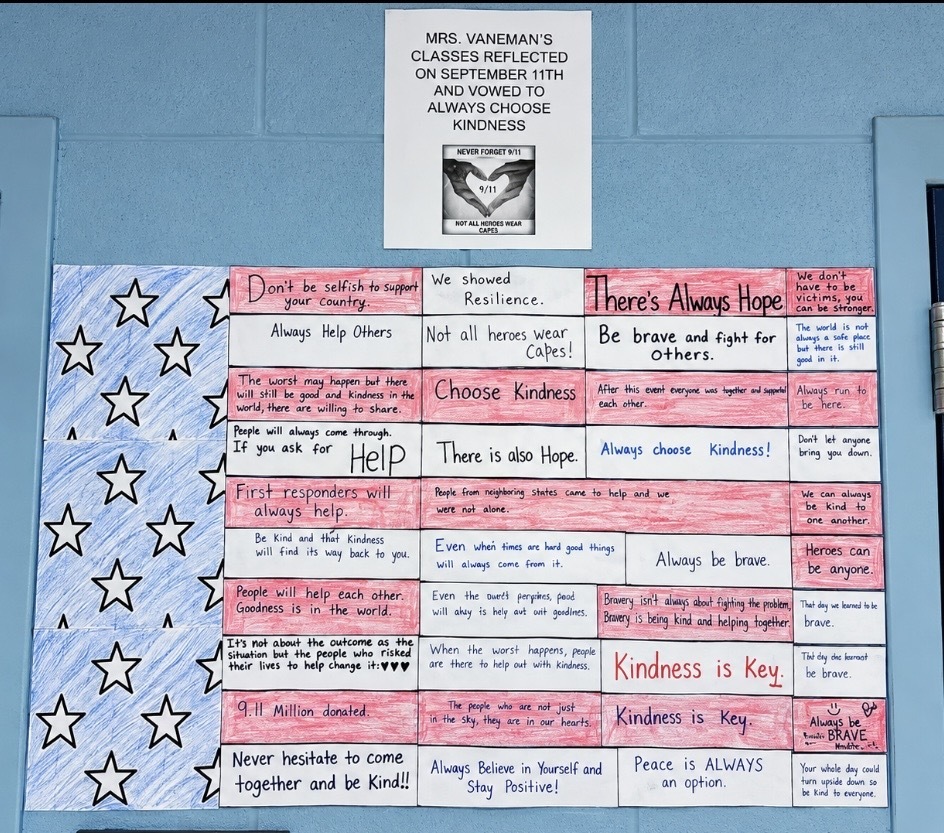 MRS. VANEMAN'S
CLASSES REFLECTED
ON SEPTEMBER 11TH
AND VOWED TO
ALWAYS CHOOSE
KINDNESS
NEVER FORGET 9/11
9/11
NOT ALL HEROES WEAR
CAPES
Don't be selfish to support
your country.
We showed
Resilience.
There's Always Hope
We don't
have to be
victims, you
can be stronger.
Always Help Others
Not all heroes wear
Capes!
Be brave and fight for
others.
The world is not
always a safe place
but there is still
good in it.
The worst may happen but there
will still be good and kindness in the
world, there are willing to share.
Choose Kindness
After this event everyone was together and
each other.
Always run to
be here.
People will always come through.
If you ask for HELP
There is also Hope.
Always choose Kindness!
Don't let anyone
bring you down.
First responders will
always help.
People from neighboring states came to help and we
were not alone.
We can always
be kind to
one another.
Be Kind and that Kindness
will find its way back to you.
Even when times are hard good things
will always come from it.
Always be brave.
Heroes can
be anyone.
People will help each other.
Goodness is in the world.
Even the
will is help
Bravery isn't always about fighting the problem,
Bravery is being kind and helping together.
That day we learned to be
brave.
It's not about the outcome as the
situation but the people who risked
their lives to help change it:♥♥♥
When the worst happens, people
are there to help out with kindness.
Kindness is Key.
day
be brave.
9.11 Million donated.
The people who are not just
in the sky, they are in our hearts.
Kindness is Key.
Always be
BRAVE
Never hesitate to come
together and be Kind!!
Always Believe in Yourself and
Stay Positive!
Peace is ALWAYS
an option.
Your whole day could
turn upside down so
be kind to everyone.